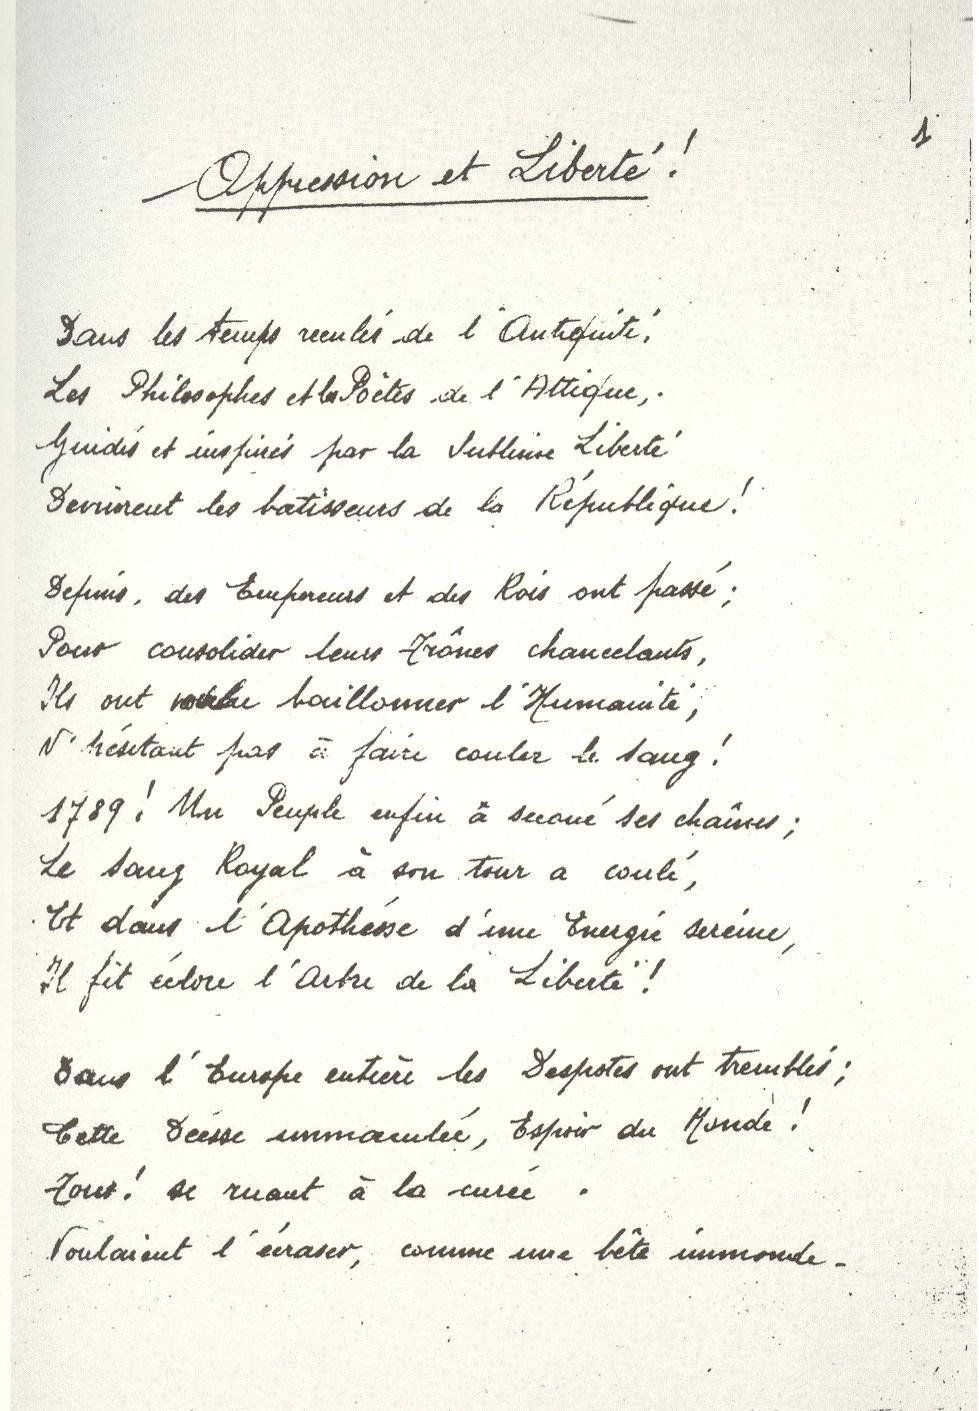 1
Oppression et Liberté !
Dans les temps reculés de l'Antiquité,
Les Philosophes et les Poètes de l'Attique,
Guidés et inspirés par la Sublime Liberté
Devinrent les batisseurs de la République !
Depuis, des Empereurs et des Rois ont passé ;
Pour consolider leurs Trônes chancelants,
Ils ont voulu baillonner l'Humanité ;
N'hésitant pas à faire couler le sang !
1789 ! Un Peuple enfin à secoué ses chaînes ;
Le sang Royal à son tour a coulé,
Et dans l'Apothésse d'une Energie sereine,
Il fit éclore l'Arbre de la Liberté !
Dans l'Europe entière les Despotes ont tremblés ;
Cette Déesse immaculée, Espoir du Monde !
Tous ! se ruant à la curée .
Voulaient l'écraser, comme une bête immonde -